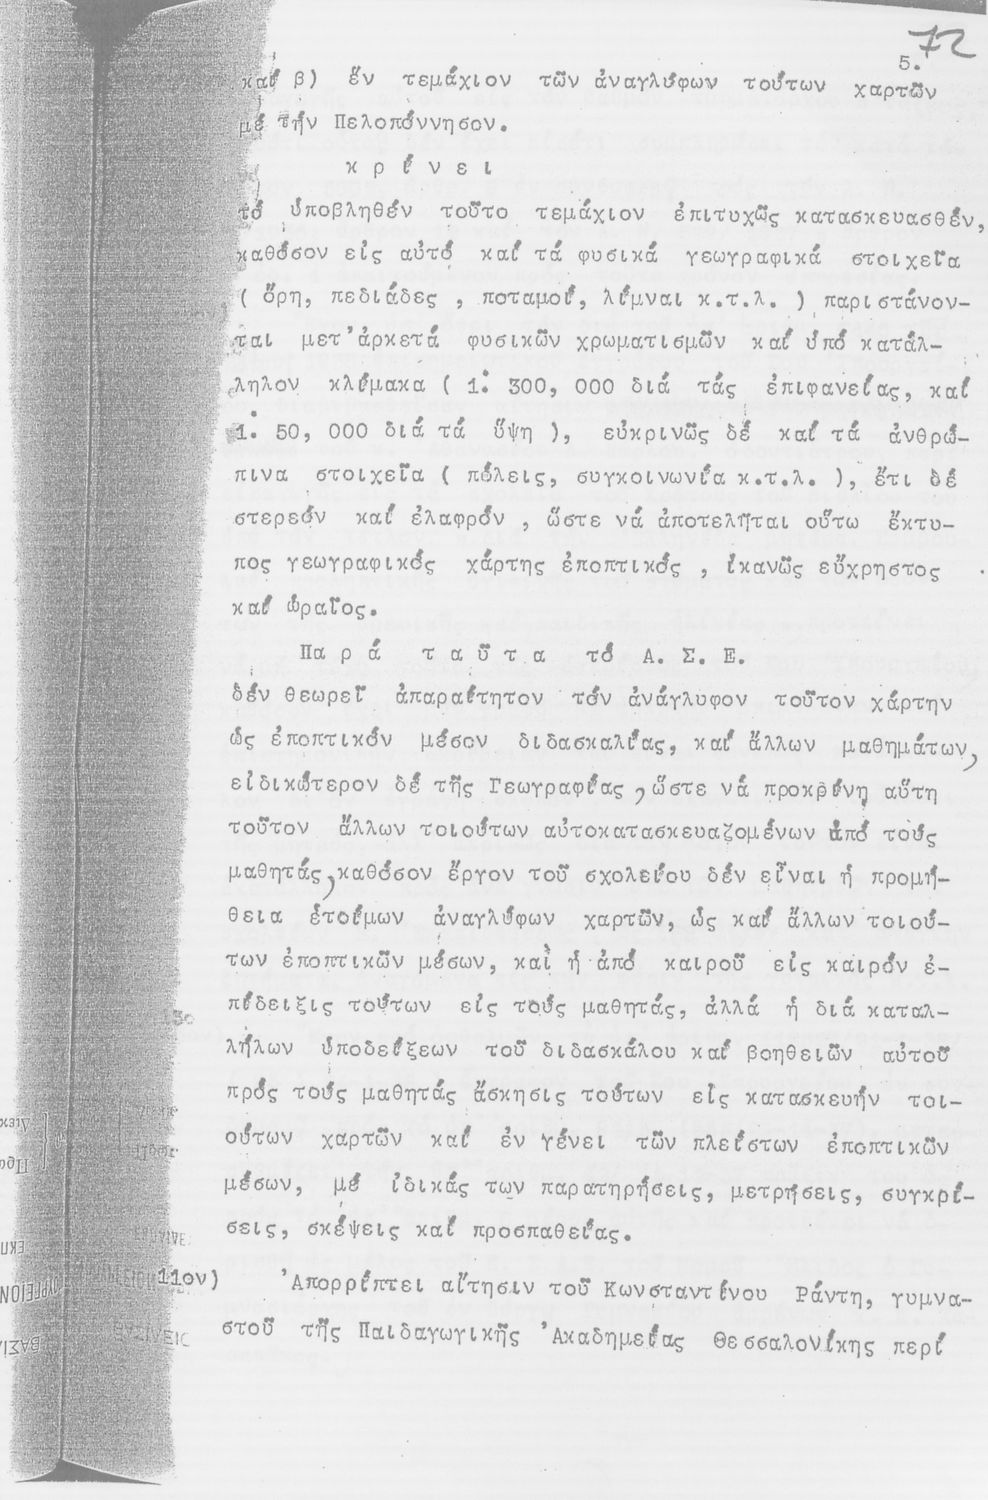 72
5.
καί β) ἕν τεμάχιον τῶν ἀναγλύφων τούτων χαρτῶν
μέ τήν Πελοπόννησον.
κ ρ ί ν ε ι
τό ὑποβληθέν τοῦτο τεμάχιον ἐπιτυχῶς κατασκευασθέν,
καθόσον εἰς αὐτό καί τά φυσικά γεωγραφικά στοιχεῖα
( ὄρη, πεδιάδες , ποταμοί, λίμναι κ.τ.λ. ) παριστάνον-
ται μετ'ἀρκετά φυσικῶν χρωματισμῶν καί ὑπό κατάλ-
ληλον κλίμακα ( 1: 300, 000 διά τάς ἐπιφανείας, καί
1: 50, 000 διά τά ὕψη ), εὐκρινῶς δέ καί τά ἀνθρώ-
πινα στοιχεῖα ( πόλεις, συγκοινωνία κ.τ.λ. ), ἔτι δέ
στερεόν καί ἐλαφρόν , ὥστε νά ἀποτελῆται οὕτω ἔκτυ-
πος γεωγραφικός χάρτης ἐποπτικός , ἱκανῶς εὔχρηστος
καί ὡραῖος.
Πα ρ ά τ α ῦ τ α τό Α. Σ. Ε.
δέν θεωρεῖ ἀπαραίτητον τόν ἀνάγλυφον τοῦτον χάρτην
ὡς ἐποπτικόν μέσον διδασκαλίας, καί ἄλλων μαθημάτων,
εἰδικώτερον δέ τῆς Γεωγραφίας , ὥστε νά προκρίνη αὕτη
τοῦτον ἄλλων τοιούτων αὐτοκατασκευαζομένων ἀπό τούς
μαθητάς, καθόσον ἔργον τοῦ σχολείου δέν εἶναι ἡ προμή-
θεια ἑτοίμων ἀναγλύφων χαρτῶν, ὡς καί ἄλλων τοιού-
των ἐποπτικῶν μέσων, καὶ ἡ ἀπό καιροῦ εἰς καιρόν ἐ-
πίδειξις τούτων εἰς τούς μαθητάς, ἀλλά ἡ διά καταλ-
λήλων ὑποδείξεων τοῦ διδασκάλου καί βοηθειῶν αὐτοῦ
πρός τούς μαθητάς ἄσκησις τούτων εἰς κατασκευήν τοι-
ούτων χαρτῶν καί ἐν γένει τῶν πλείστων ἐποπτικῶν
μέσων, μέ ἰδικάς των παρατηρήσεις, μετρήσεις, συγκρί-
σεις, σκέψεις καί προσπαθείας.
11ον) Ἀπορρίπτει αἴτησιν τοῦ Κωνσταντίνου Ράντη, γυμνα-
στοῦ τῆς Παιδαγωγικῆς Ἀκαδημείας Θεσσαλονίκης περί